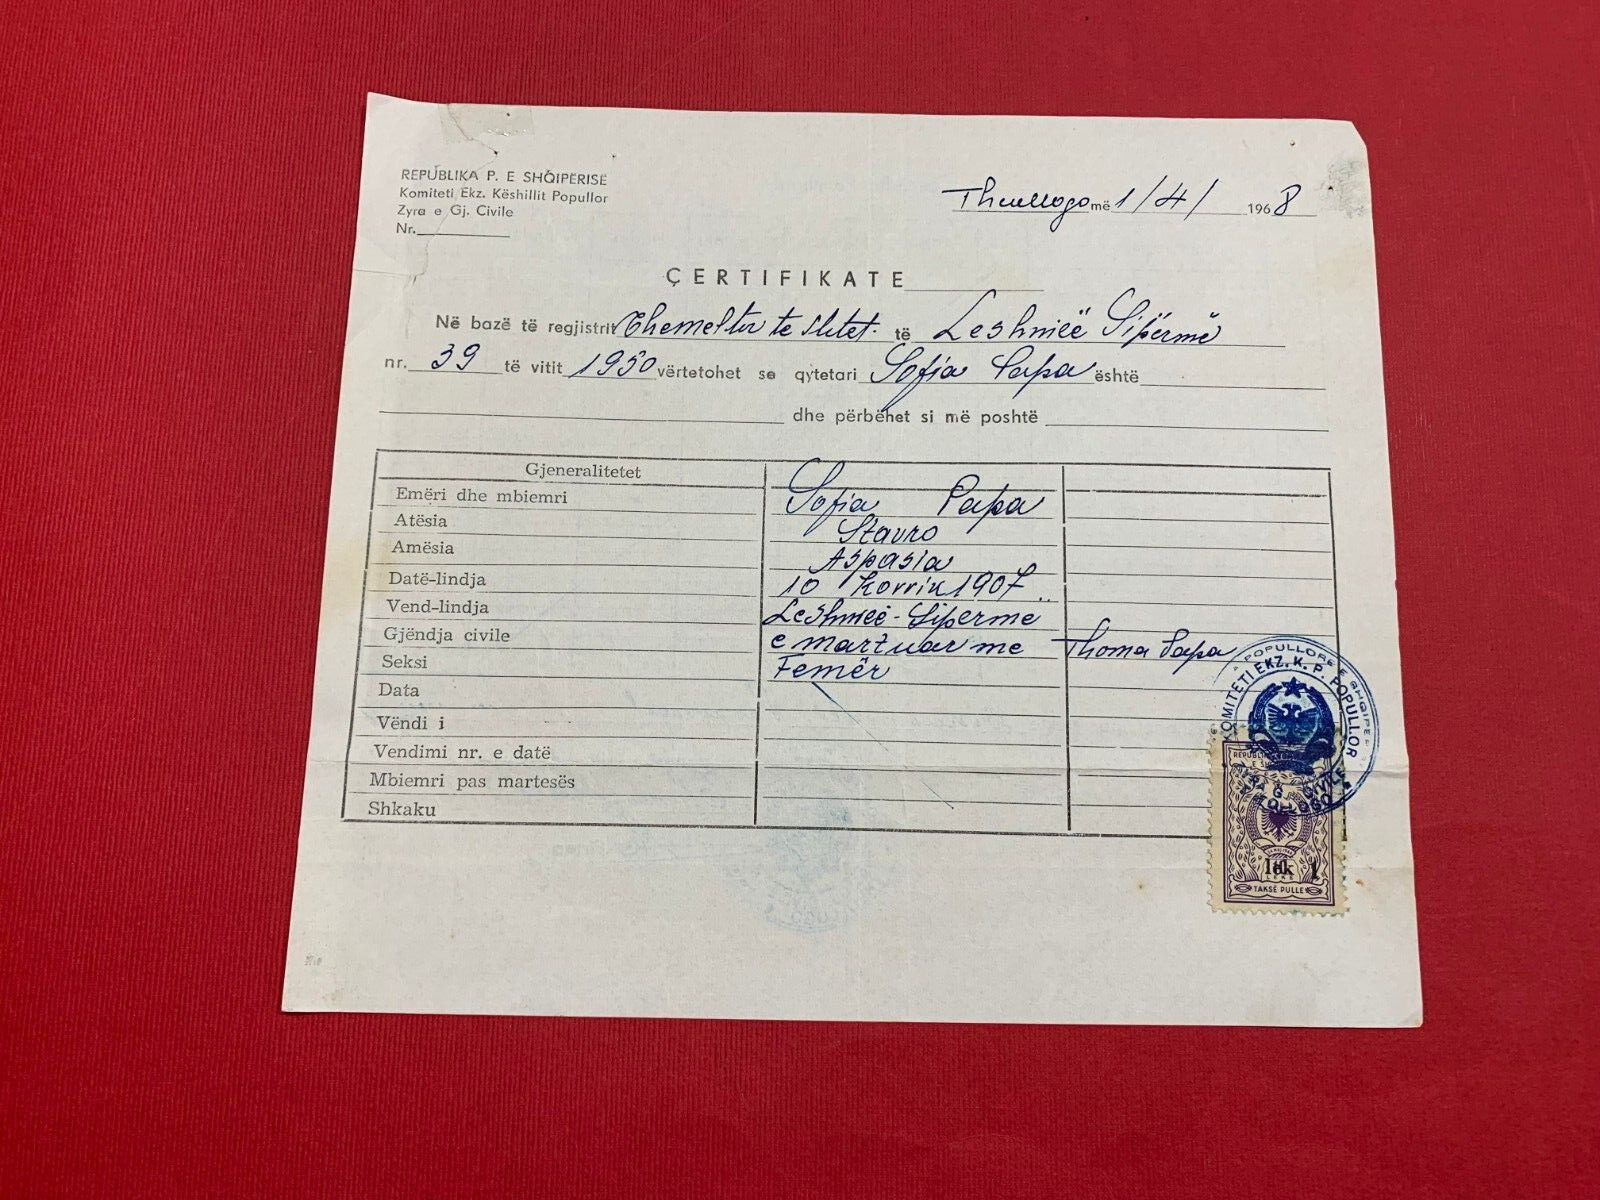 REPUBLIKA P. E SHQIPERISE
Komiteti Ekz. Këshillit Popullor
Zyra e Gj. Civile
Nr.
më 1/4/ 1968
ÇERTIFIKATE
Në bazë të regjistrit Themeltar te shtet. të Leshnicë Sipërmë
nr. 39 të vitit 1950 vërtetohet se qytetari Sofia Papa është
dhe përbëhet si më poshtë
Gjeneralitetet
Emëri dhe mbiemri Sofia Papa
Atësia Stavro
Amësia Aspasia
Datë-lindja 10 Korrik 1907
Vend-lindja Leshnicë-Sipermë
Gjëndja civile e martuar me Thoma Papa
Seksi Femër
Data
Vëndi i
Vendimi nr. e datë
Mbiemri pas martesës
Shkaku
POPULLORE E SHQIPE
KOMITETI EKZ. K. P. POPULLOR
CIVILE
1 lek 1
TAKSË PULLE